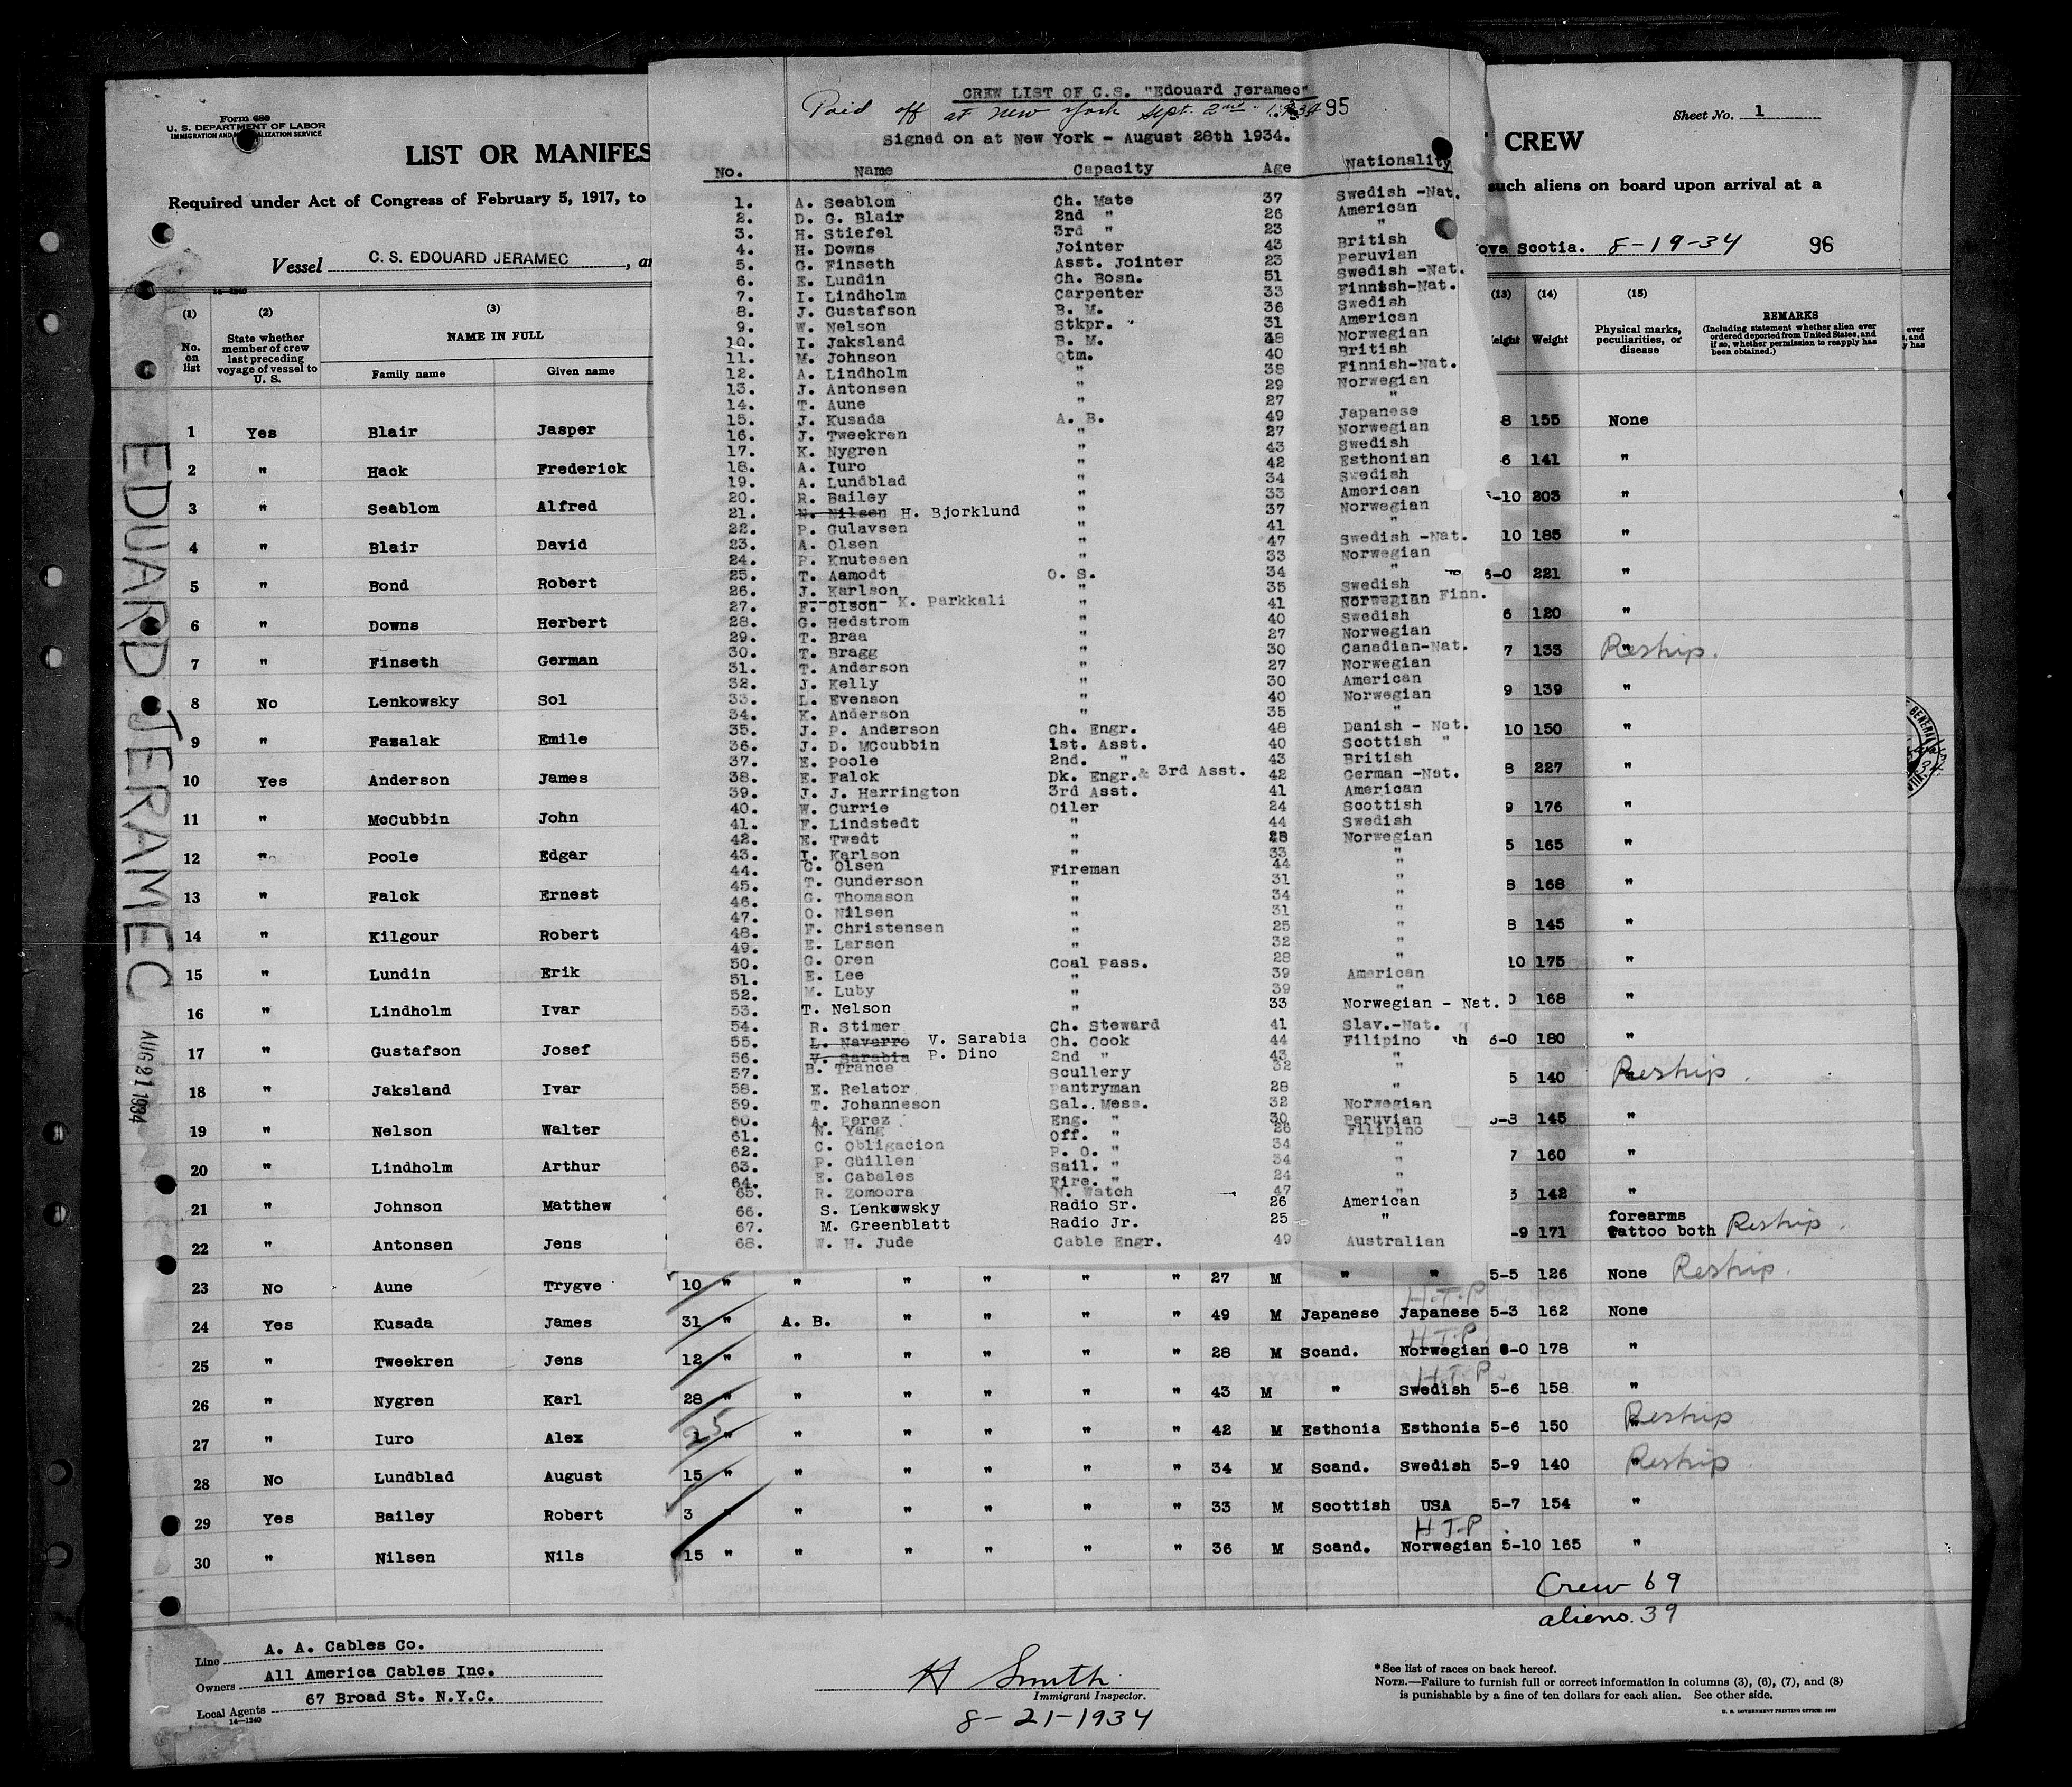 Form 680
U. S. DEPARTMENT OF LABOR
IMMIGRATION AND NATURALIZATION SERVICE
LIST OR MANIFES
CREW
Sheet No. 1
Required under Act of Congress of February 5, 1917, to
such aliens on board upon arrival at a
Vessel C. S. EDOUARD JERAMEC
ova Scotia. 8-19-34 96
EDUARD JERAMEC AUG 21 1934
CREW LIST OF C.S. "Edouard Jeramec"
Paid off at New York Sept. 2nd 1934 95
Signed on at New York - August 28th 1934.
No. Name Capacity Age Nationality
1. A. Seablom Ch. Mate 37 Swedish -Nat.
2. D. G. Blair 2nd " 26 American
3. H. Stiefel 3rd " 23 "
4. H. Downs Jointer 43 British
5. G. Finseth Asst. Jointer 23 Peruvian
6. E. Lundin Ch. Bosn. 51 Swedish -Nat.
7. I. Lindholm Carpenter 33 Finnish-Nat.
8. J. Gustafson B. M. 36 Swedish
9. W. Nelson Stkpr. 31 American
10. I. Jaksland B. M. 38 Norwegian
11. M. Johnson Qtm. 40 British
12. A. Lindholm " 38 Finnish-Nat.
13. J. Antonsen " 29 Norwegian
14. T. Aune " 27 "
15. J. Kusada A. B. 49 Japanese
16. J. Tweekren " 27 Norwegian
17. K. Nygren " 43 Swedish
18. A. Iuro " 42 Esthonian
19. A. Lundblad " 34 Swedish
20. R. Bailey " 33 American
21. N. Nilsen H. Bjorklund " 37 Norwegian
22. P. Gulavsen " 41 "
23. A. Olsen " 47 Swedish -Nat.
24. P. Knutesen " 33 Norwegian
25. T. Aamodt O. S. 34 "
26. J. Karlson " 35 Swedish
27. F. Olson K. Parkkali " 41 Norwegian Finn.
28. G. Hedstrom " 40 Swedish
29. T. Braa " 27 Norwegian
30. T. Bragg " 30 Canadian-Nat.
31. T. Anderson " 27 Norwegian
32. J. Kelly " 30 American
33. L. Evenson " 40 Norwegian
34. K. Anderson " 35 "
35. J. P. Anderson Ch. Engr. 48 Danish - Nat.
36. J. D. McCubbin 1st. Asst. 40 Scottish "
37. E. Poole 2nd. " 43 British
38. E. Falck Dk. Engr. & 3rd Asst. 42 German -Nat.
39. J. J. Harrington 3rd Asst. 41 American
40. W. Currie Oiler 24 Scottish
41. F. Lindstedt " 44 Swedish
42. E. Twedt " 28 Norwegian
43. I. Karlson " 33 "
44. C. Olsen Fireman 44 "
45. T. Gunderson " 31 "
46. G. Thomason " 34 "
47. O. Nilsen " 31 "
48. F. Christensen " 25 "
49. E. Larsen " 32 "
50. G. Oren Coal Pass. 28 "
51. E. Lee " 39 American
52. M. Luby " 39 "
53. T. Nelson " 33 Norwegian - Nat.
54. R. Stimer Ch. Steward 41 Slav.-Nat.
55. L. Navarro V. Sarabia Ch. Cook 44 Filipino
56. V. Sarabia P. Dino 2nd " 43 "
57. B. Trance Scullery 32 "
58. E. Relator Pantryman 28 "
59. T. Johanneson Sal. Mess. 32 Norwegian
60. A. Perez Eng. " 30 Peruvian
61. N. Yang Off. " 26 Filipino
62. C. Obligacion P. O. " 34 "
63. P. Guillen Sail. " 34 "
64. E. Cabales Fire. " 24 "
65. R. Zomoora N. Watch 47 "
66. S. Lenkowsky Radio Sr. 26 American
67. M. Greenblatt Radio Jr. 25 "
68. W. H. Jude Cable Engr. 49 Australian
(1) (2) (3) (13) (14) (15)
No. on list
State whether member of crew last preceding voyage of vessel to U. S.
NAME IN FULL
Family name Given name
eight Weight
Physical marks, peculiarities, or disease
REMARKS
(Including statement whether alien ever ordered deported from United States, and if so, whether permission to reapply has been obtained.)
1 Yes Blair Jasper 8 155 None
2 " Hack Frederick 6 141 "
3 " Seablom Alfred -10 203 "
4 " Blair David 10 185 "
5 " Bond Robert 6-0 221 "
6 " Downs Herbert 6 120 "
7 " Finseth German 7 133 " Reship.
8 No Lenkowsky Sol 9 139 "
9 " Fazalak Emile 10 150 "
10 Yes Anderson James 8 227 "
11 " McCubbin John 9 176 "
12 " Poole Edgar 5 165 "
13 " Falck Ernest 8 168 "
14 " Kilgour Robert 8 145 "
15 " Lundin Erik 10 175 "
16 " Lindholm Ivar 0 168 "
17 " Gustafson Josef 6-0 180 "
18 " Jaksland Ivar 5 140 " Reship.
19 " Nelson Walter -8 145 "
20 " Lindholm Arthur 7 160 "
21 " Johnson Matthew 3 142 "
22 " Antonsen Jens -9 171 forearms tattoo both Reship.
23 No Aune Trygve 10 " " " " " " 27 M " " 5-5 126 None Reship.
24 Yes Kusada James 31 " A. B. " " " " 49 M Japanese H.T.P. Japanese 5-3 162 None
25 " Tweekren Jens 12 " " " " " " 28 M Scand. H.T.P. Norwegian 6-0 178 "
26 " Nygren Karl 28 " " " " " " 43 M " H.T.P. Swedish 5-6 158 "
27 " Iuro Alex 25 " " " " " " 42 M Esthonia Esthonia 5-6 150 " Reship
28 No Lundblad August 15 " " " " " " 34 M Scand. Swedish 5-9 140 " Reship.
29 Yes Bailey Robert 3 " " " " " " 33 M Scottish USA 5-7 154 "
30 " Nilsen Nils 15 " " " " " " 36 M Scand. H.T.P. Norwegian 5-10 165 "
Crew 69
aliens. 39
Line A. A. Cables Co.
Owners All America Cables Inc.
Local Agents 67 Broad St. N.Y.C.
14-1240
H Smith
Immigrant Inspector.
8-21-1934
*See list of races on back hereof.
NOTE.—Failure to furnish full or correct information in columns (3), (6), (7), and (8)
is punishable by a fine of ten dollars for each alien. See other side.
U. S. GOVERNMENT PRINTING OFFICE: 1933